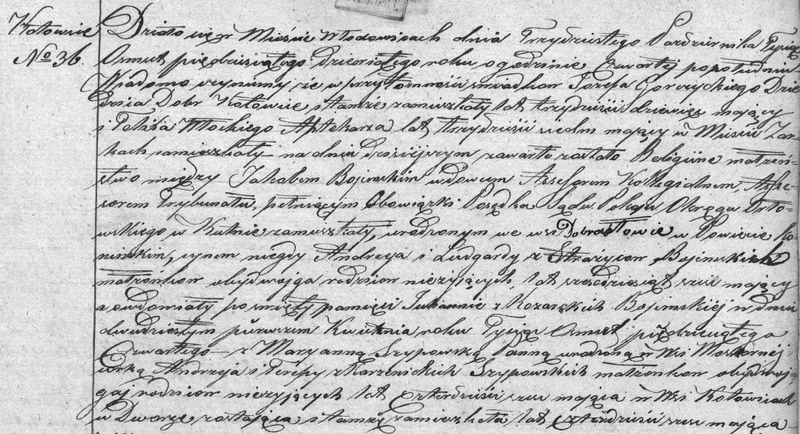 Kotowice
№ 36.
Działo się w Mieście Włodowicach dnia Trzydziestego Października Tysiąc
Osmset pięćdziesiątego Dziewiątego roku o godzinie Czwartej popołudniu
Wiadomo czynimy że w przytomności świadków Józefa Gorczyckiego Dzie
dzica Dóbr Kotowice i tamże zamieszkały lat trzydzieści dziewięć mający
i Feliksa Włockiego Aptekarza lat trzydzieści siedm mający w Mieście Żar
kach zamieszkały na dniu dzisiejszym zawarte zostało Religijne małżeń
stwo między Jakóbem Bojarskim wdowcem Assessorem Kollegialnym, Asse
sorem Trybunału, pełniącym Obowiązki Podsędka Sądu Pokoju Okręgu
w Kutnie zamieszkały, urodzonym we wsi w Powiecie Ko
nińskim, synem niegdy Andrzeja i Ludgardy z Bojarskich
małżonków obydwojga rodziców nieżyjących, lat sześćdziesiąt sześć mający
a owdowiały po śmierci pamięci Juliannie z Kozarskich Bojarskiej w dniu
dwudziestym pierwszym Kwietnia roku Tysiąc Osmset pięćdziesiątego
Czwartego — z Maryanną Szypowską Panną urodzoną w Wsi
córką Andrzeja i Teresy z Szypowskich małżonków obydwoj
gaj rodziców nieżyjących lat czterdzieści sześć mająca w Wsi Kotowicach
w Dworze zostająca i tamże zamieszkała lat czterdzieści sześć mająca